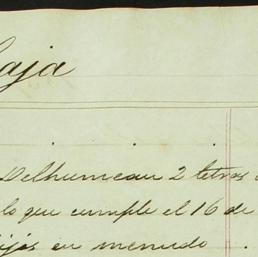 Caja
Delhumeau 2 letras
lo que cumple el 16 de
en menudo